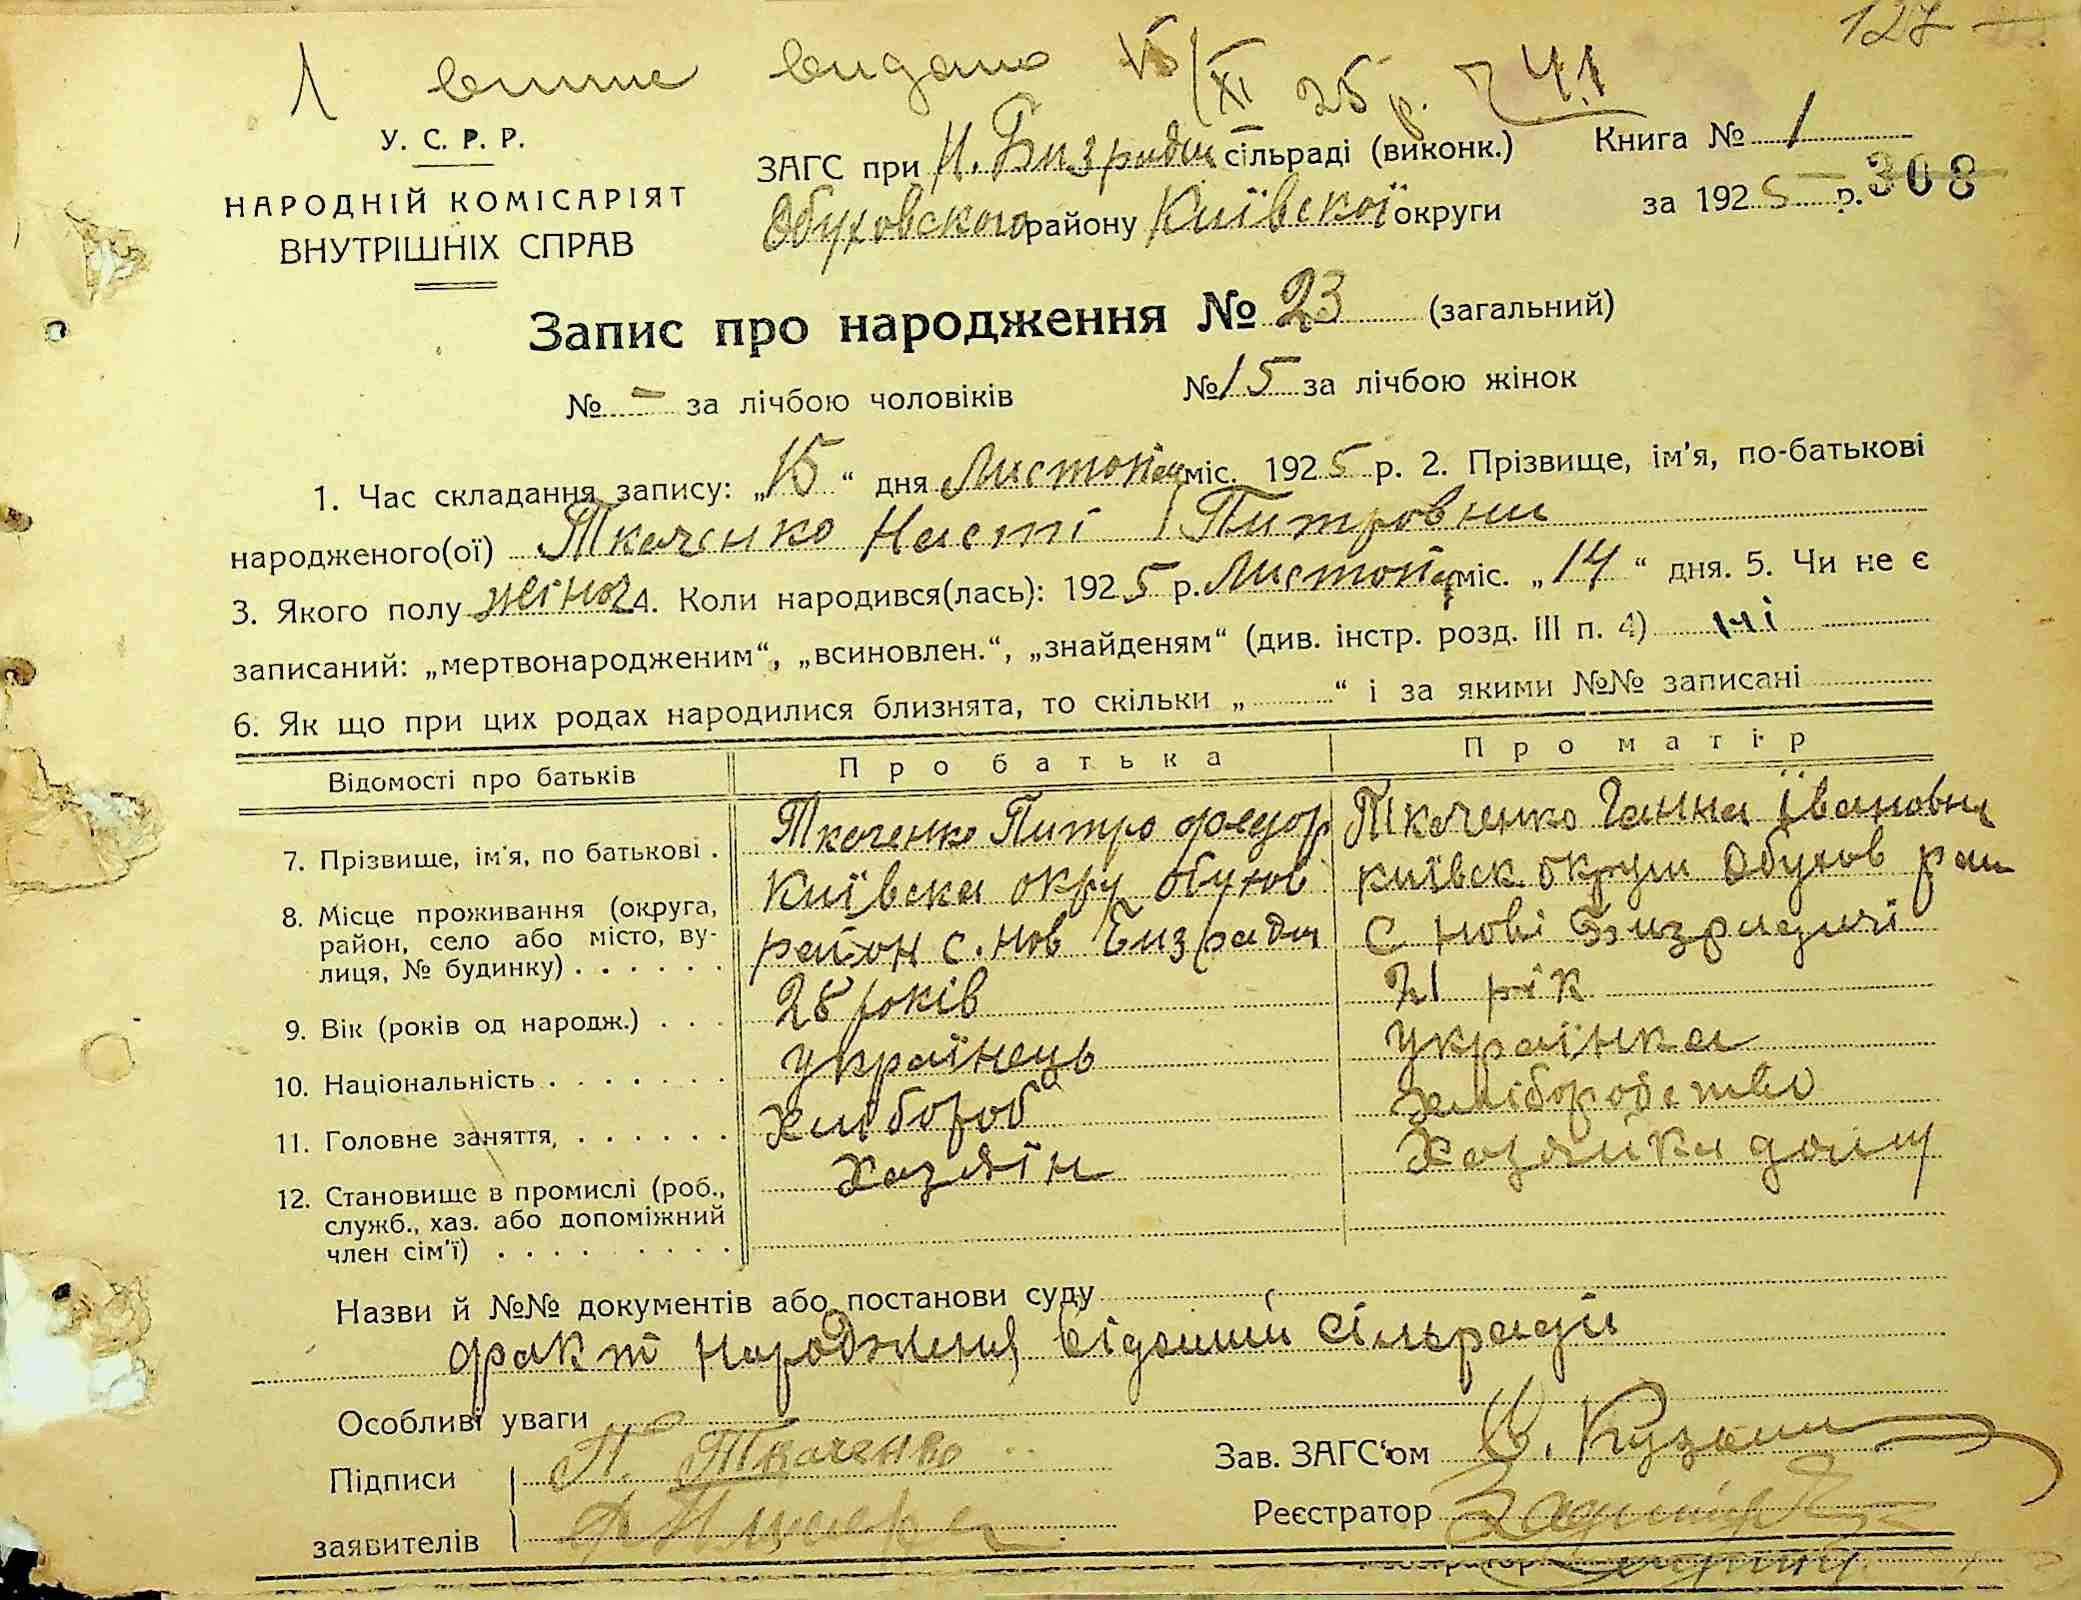 127
1 випис видано 15/XI 25 р. Ч 41
У. С. Р. Р.
НАРОДНІЙ КОМІСАРІЯТ
ВНУТРІШНІХ СПРАВ
ЗАГС при Н. Бизради сільраді (виконк.)
Обуховского району Київскої округи
Книга № 1
за 1925 р. 308
Запис про народження № 23 (загальний)
№ – за лічбою чоловіків № 15 за лічбою жінок
1. Час складання запису: „15“ дня Листопад міс. 1925 р. 2. Прізвище, ім'я, по-батькові
народженого(ої) Ткаченко Насті Питровни
3. Якого полу жіноч 4. Коли народився(лась): 1925 р. Листопад міс. „14“ дня. 5. Чи не є
записаний: „мертвонародженим“, „всиновлен.“, „знайденям“ (див. інстр. розд. III п. 4) ні
6. Як що при цих родах народилися близнята, то скільки „ “ і за якими №№ записані
Відомості про батьків Про батька Про матір
7. Прізвище, ім'я, по батькові . Ткаченко Питро Федор Ткаченко Ганна Івановна
8. Місце проживання (округа, Київска окру Обухов Київск. округи Обухов рай
район, село або місто, ву- район с. Нов Бизради с Нові Бизрадичі
лиця, № будинку) . . . . . .
9. Вік (років од народж.) . . . 28 років 21 рік
10. Національність . . . . . . . українець українка
11. Головне заняття, . . . . . . хлібороб хліборобство
12. Становище в промислі (роб., хазяїн хазяйка дому
служб., хаз. або допоміжний
член сім'ї) . . . . . . . . .
Назви й №№ документів або постанови суду
факт народження відомий сільраді
Особливі уваги
Підписи П. Ткаченко
заявителів
Зав. ЗАГС'ом
Реєстратор